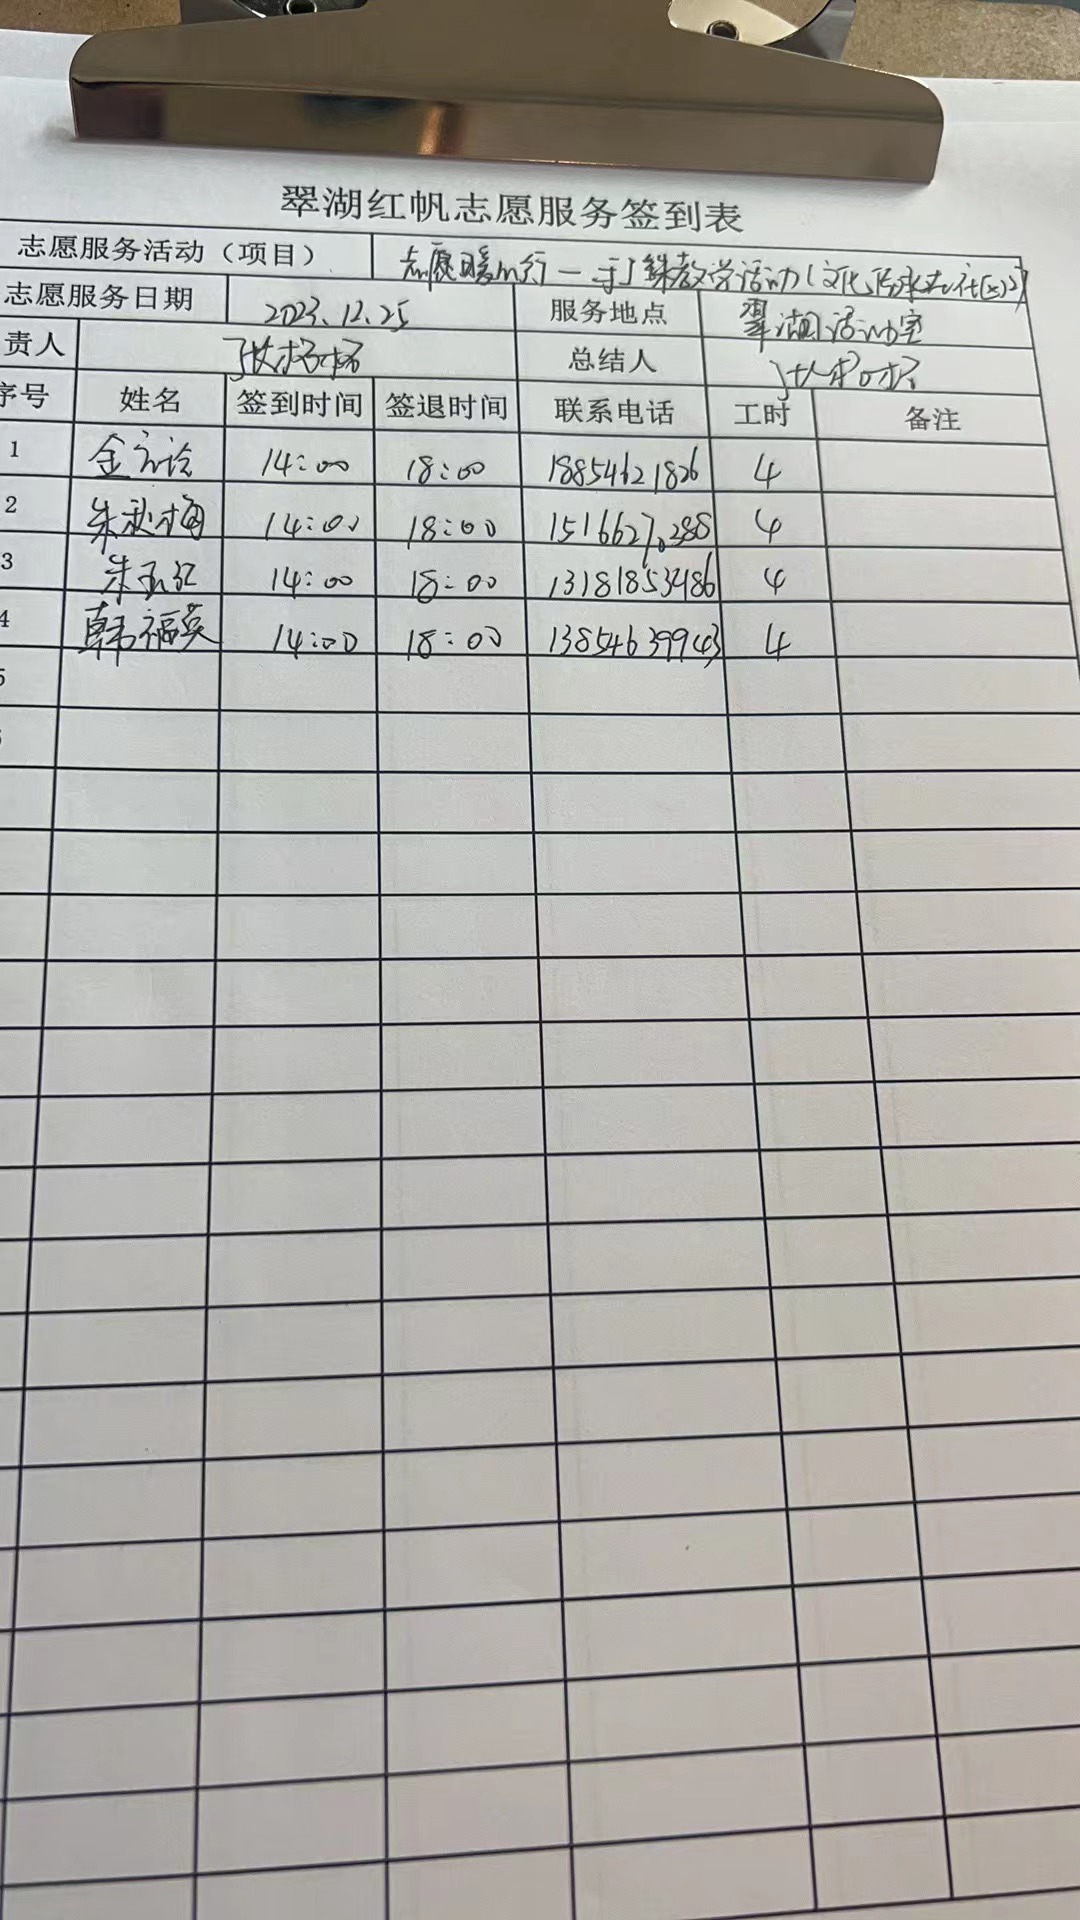 翠湖红帆志愿服务签到表
志愿服务活动（项目） 志愿暖心行一手工 教学活动(文化
志愿服务日期 2023.12.25 服务地点 翠湖活动室
责人 张杨杨 总结人
序号 姓名 签到时间 签退时间 联系电话 工时 备注
1 金 14:00 18:00 18854621826 4
2 朱秋梅 14:00 18:00 4
3 朱玉红 14:00 18:00 13181853486 4
4 韩福英 14:00 18:00 13854639943 4
5